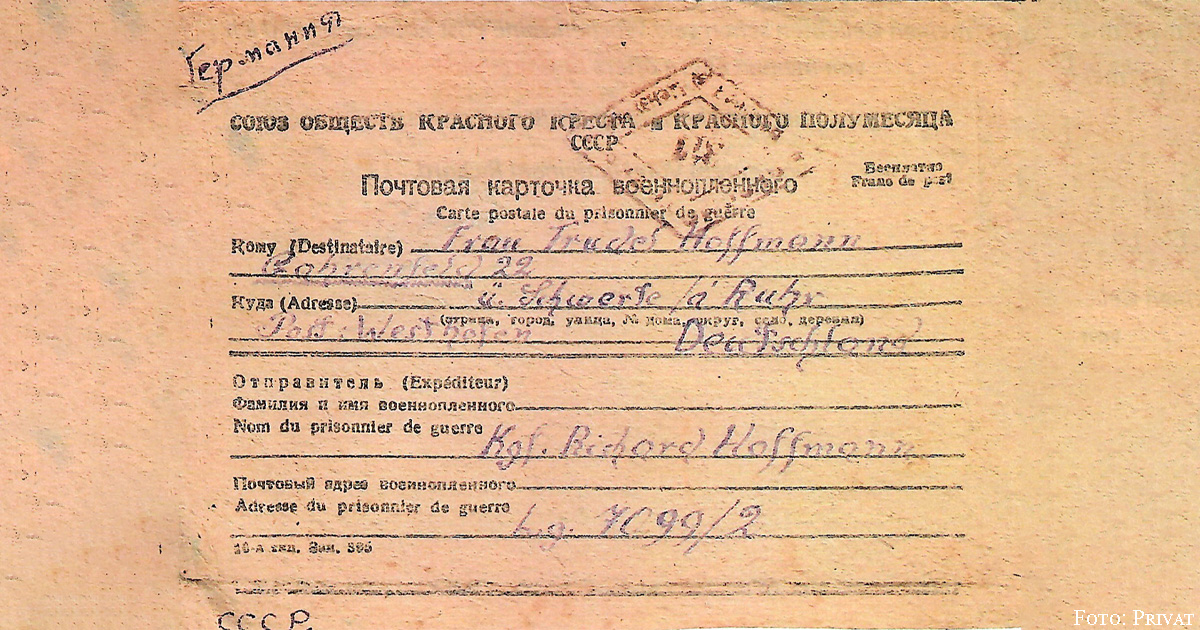 Германия
СОЮЗ ОБЩЕСТВ КРАСНОГО КРЕСТА и КРАСНОГО ПОЛУМЕСЯЦА
СССР
Бесплатно
Franc de port
Почтовая карточка военнопленного
Carte postale du prisonnier de guerre
Кому (Destinataire) Frau Trudel Hoffmann
22
Куда (Adresse) ü. Schwerte /a Ruhr
(страна, город, улица, № дома, округ, село, деревня)
Post: Westhofen Deutschland
Отправитель (Expéditeur)
Фамилия и имя военнопленного
Nom du prisonnier de guerre Kgf. Richard Hoffmann
Почтовый адрес военнопленного
Adresse du prisonnier de guerre Lg. 7099/2
16-я тип. Зак. 395
СССР.
Foto: Privat